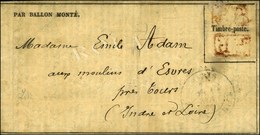 PAR BALLON MONTÉ.
Timbre-poste.
Madame Emile Adam
aux moulins d'Esvres
près Tours
(Indre et Loire)